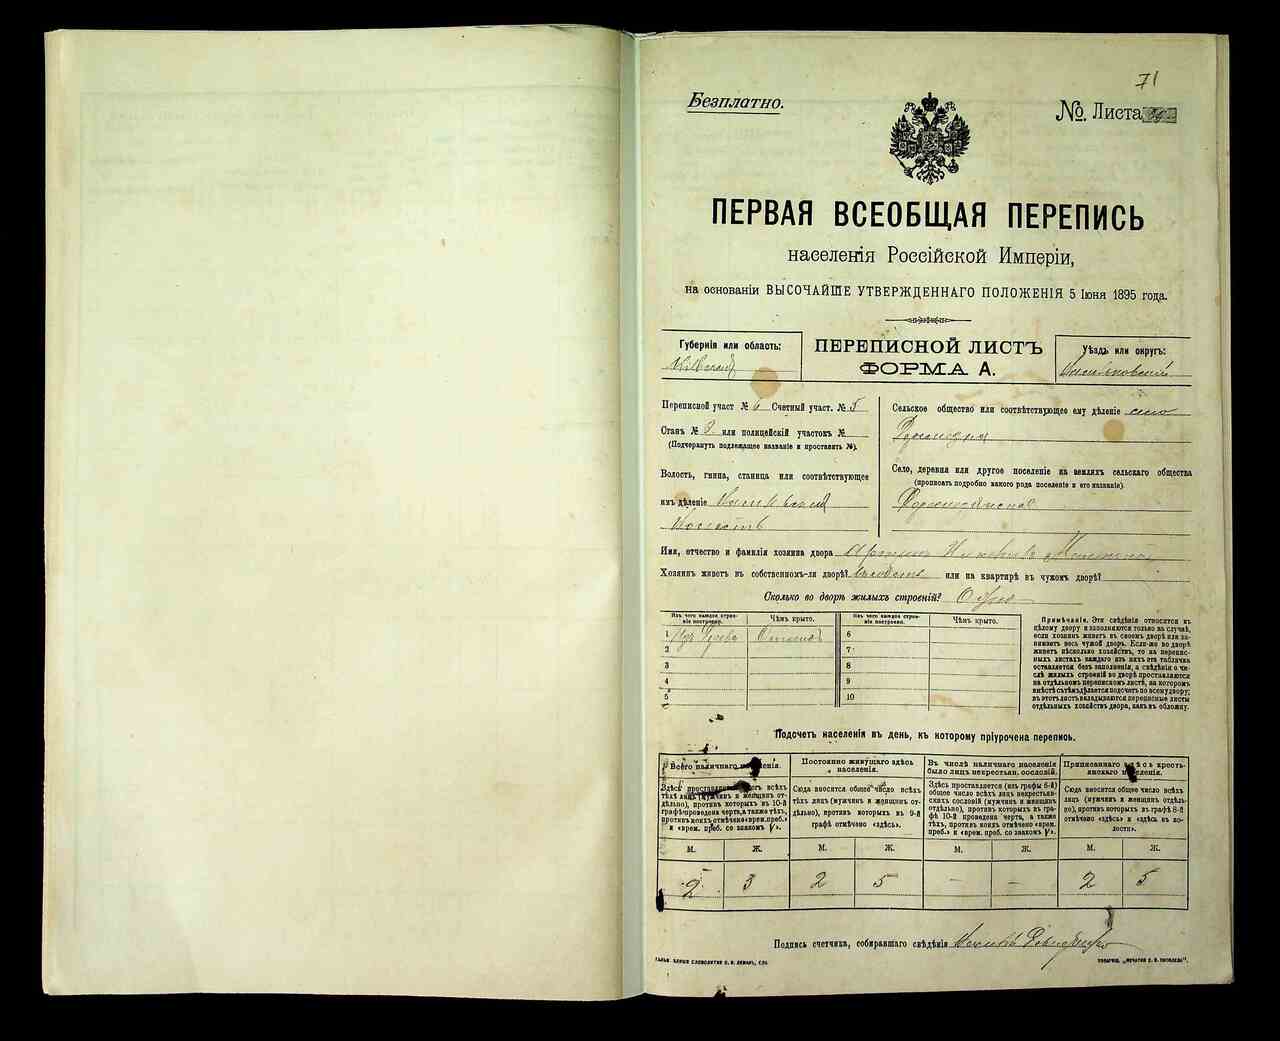 71
Безплатно.
№. Листа
ПЕРВАЯ ВСЕОБЩАЯ ПЕРЕПИСЬ
населенія Россійской Имперіи,
на основаніи ВЫСОЧАЙШЕ УТВЕРЖДЕННАГО ПОЛОЖЕНІЯ 5 Іюня 1895 года.
Губернія или область:
ПЕРЕПИСНОЙ ЛИСТЪ
ФОРМА А.
Уѣздъ или округъ:
Васильковскій
Переписной участ № 6 Счетный участ. № 5
Станъ № 2 или полицейскій участокъ №
(Подчеркнуть подлежащее названіе и проставить №).
Волость, гмина, станица или соотвѣтствующее
имъ дѣленіе
Волость
Сельское общество или соотвѣтствующее ему дѣленіе село
Село, деревня или другое поселеніе на земляхъ сельскаго общества
(прописать подробно какого рода поселеніе и его названіе).
Имя, отчество и фамилія хозяина двора
Хозяинъ живетъ въ собственномъ-ли дворѣ? или на квартирѣ въ чужомъ дворѣ?
Сколько во дворѣ жилыхъ строеній? Одно
Изъ чего каждое строеніе построено. Чѣмъ крыто. Изъ чего каждое строеніе построено. Чѣмъ крыто.
1 Изъ дерева Соломой 6
2 7
3 8
4 9
5 10
Примѣчаніе. Эти свѣдѣнія относятся къ
цѣлому двору и заполняются только въ случаѣ,
если хозяинъ живетъ въ своемъ дворѣ или занимаетъ весь чужой дворъ. Если-же во дворѣ
живетъ нѣсколько хозяйствъ, то на переписныхъ листахъ каждаго изъ нихъ эта табличка
оставляется безъ заполненія, а свѣдѣнія о числѣ жилыхъ строеній во дворѣ проставляются
на отдѣльномъ переписномъ листѣ, на которомъ
вмѣстѣ съ тѣмъ дѣлается подсчетъ по всему двору;
въ этотъ листъ вкладываются переписные листы
отдѣльныхъ хозяйствъ двора, какъ въ обложку.
Подсчетъ населенія въ день, къ которому пріурочена перепись.
Всего наличнаго населенія.
Здѣсь проставляется всѣхъ
тѣхъ лицъ (мужчинъ и женщинъ отдѣльно), противъ которыхъ въ 10-й
графѣ проведена черта, а также тѣхъ,
противъ коихъ отмѣчено «врем. преб.»
и «врем. преб. со знакомъ V».
Постоянно живущаго здѣсь
населенія.
Сюда вносится общее число всѣхъ
тѣхъ лицъ (мужчинъ и женщинъ отдѣльно), противъ которыхъ въ 9-й
графѣ отмѣчено «здѣсь».
Въ числѣ наличнаго населенія
было лицъ некрестьян. сословій.
Здѣсь проставляется (изъ графы 6-й)
общее число всѣхъ лицъ некрестьянскихъ сословій (мужчинъ и женщинъ
отдѣльно), противъ которыхъ въ графѣ 10-й проведена черта, а также
тѣхъ, противъ коихъ отмѣчено «врем.
преб.» и «врем. преб. со знакомъ V».
Приписаннаго здѣсь крестьянскаго населенія.
Сюда вносится общее число всѣхъ
лицъ (мужчинъ и женщинъ отдѣльно), противъ которыхъ въ графѣ 8-й
отмѣчено «здѣсь» и «здѣсь въ волости».
М. Ж. М. Ж. М. Ж. М. Ж.
2 3 2 5 – – 2 5
Подпись счетчика, собиравшаго свѣдѣнія